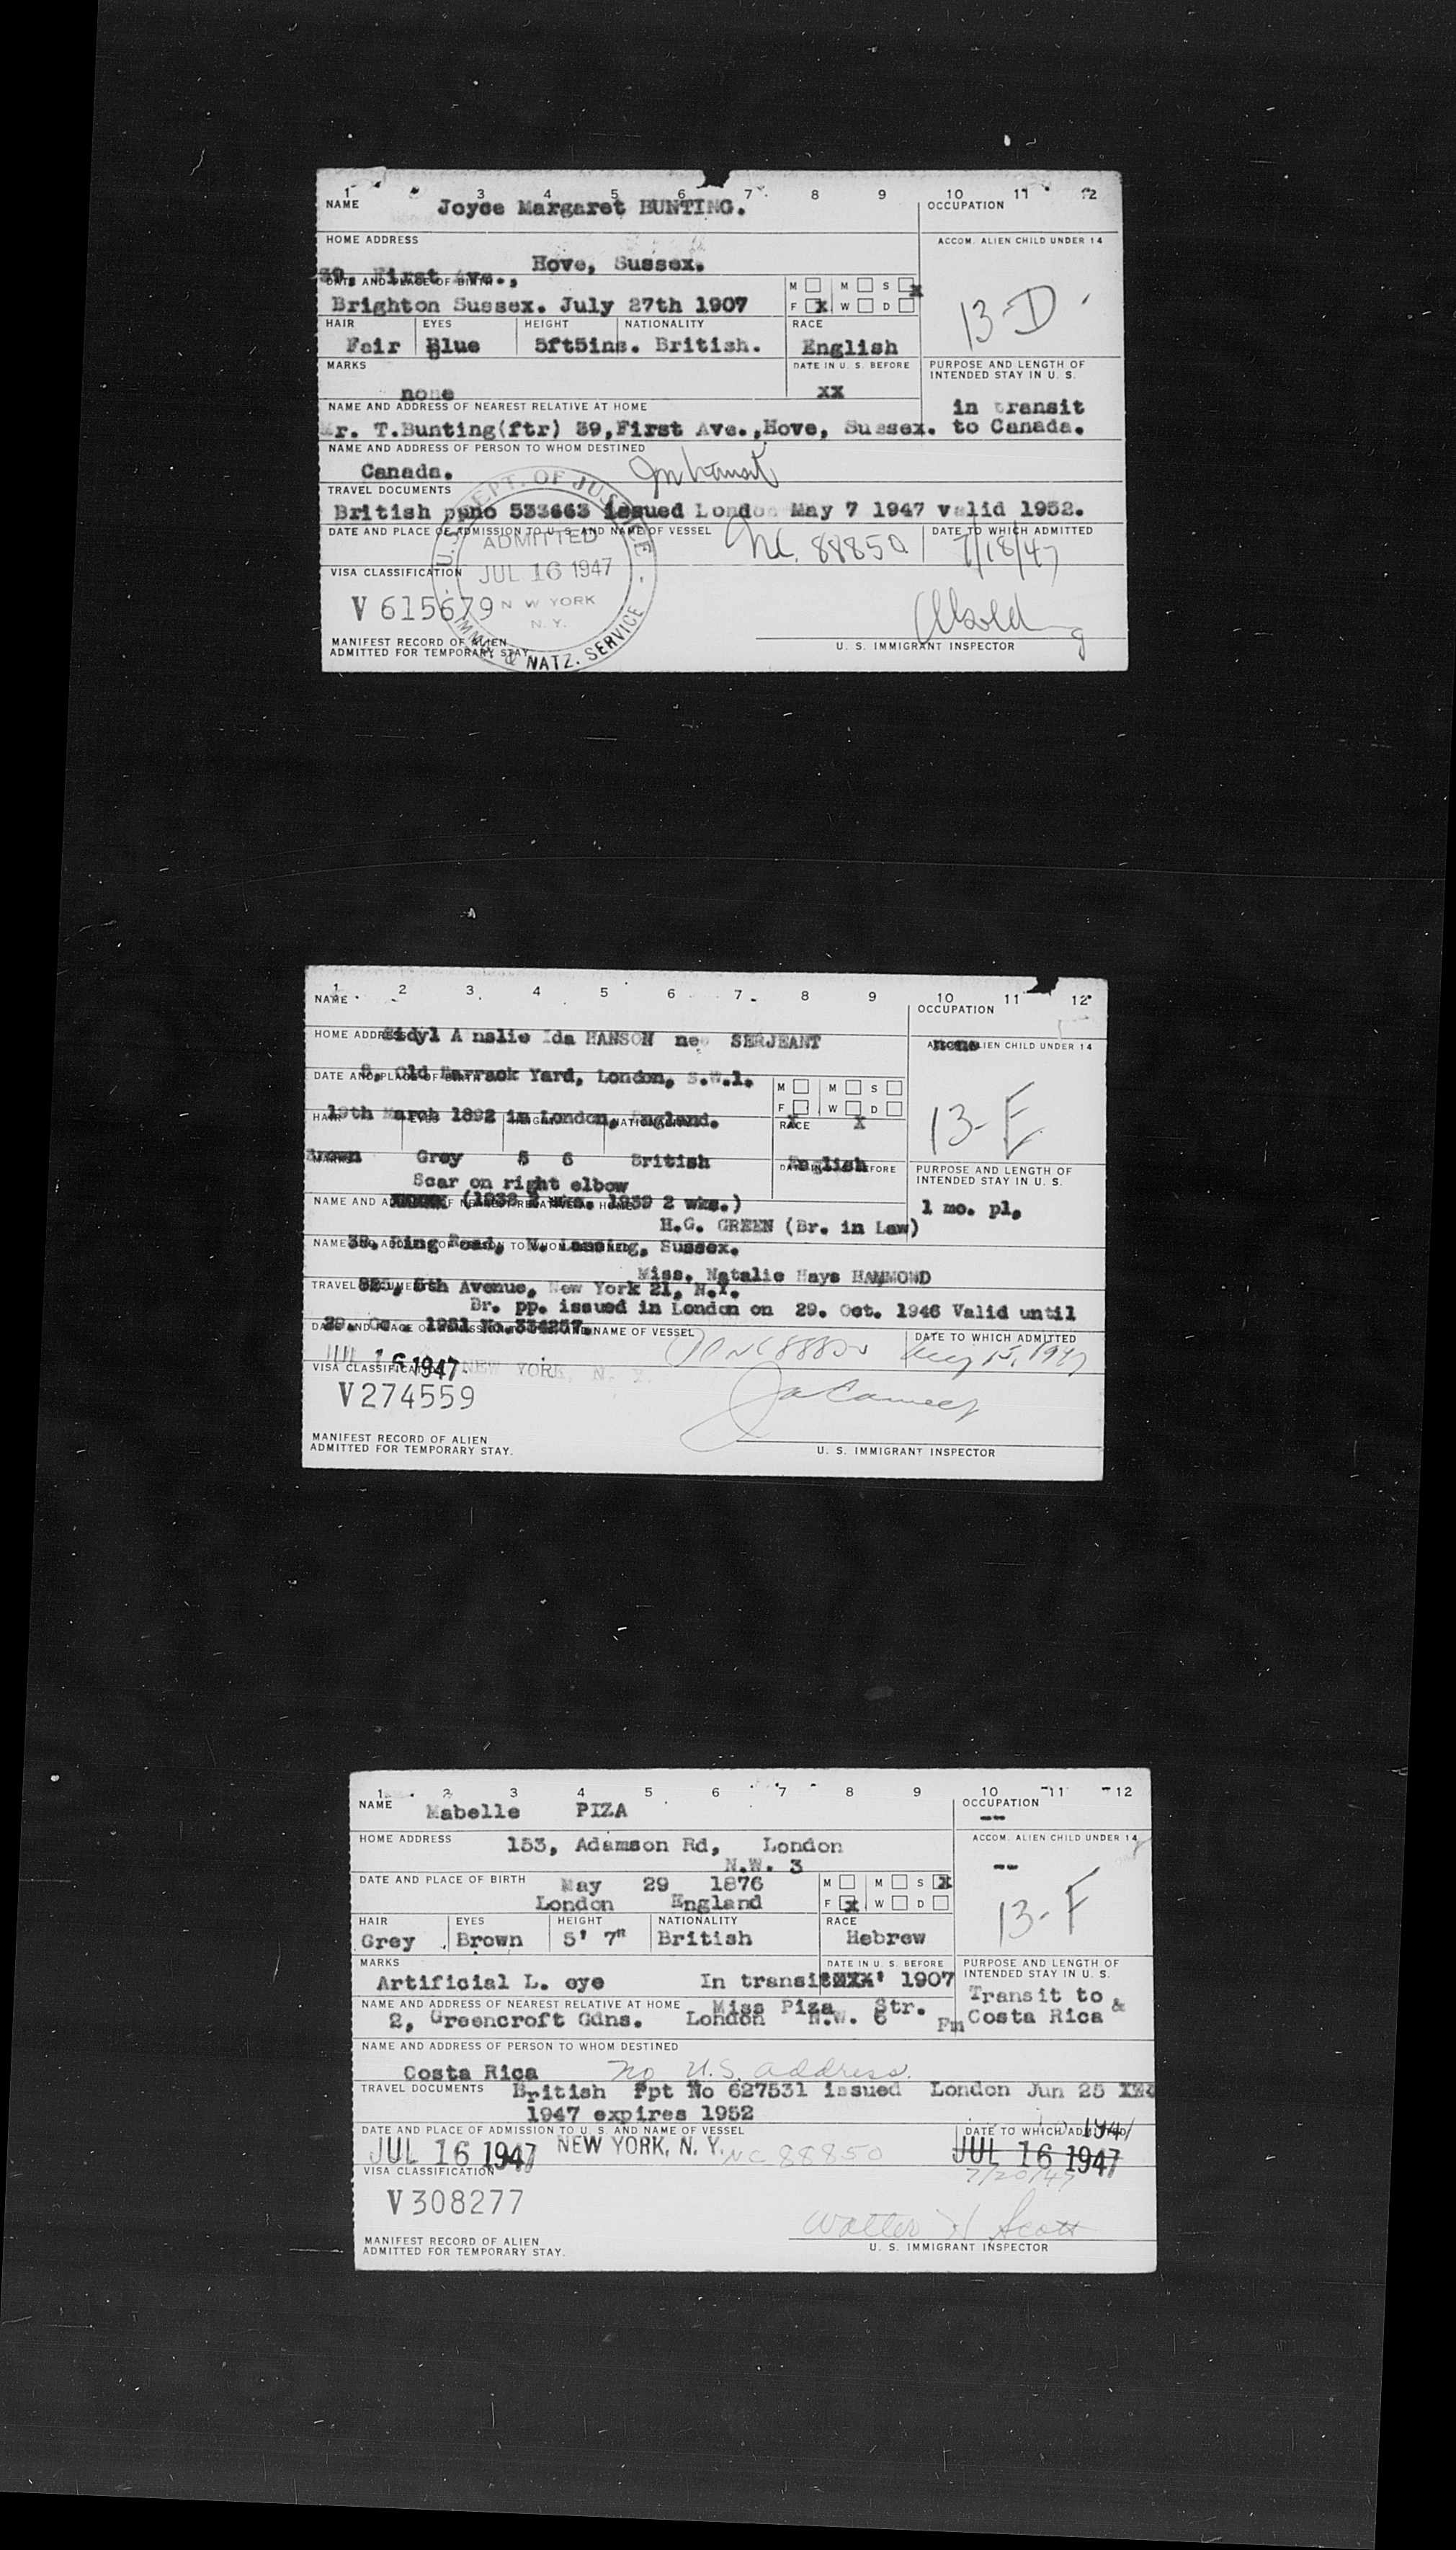 1 3 4 5 6 7 8 9 10 11 12
NAME Joyce Margaret BUNTING. OCCUPATION
HOME ADDRESS ACCOM. ALIEN CHILD UNDER 14
39, First Ave., Hove, Sussex.
DATE AND PLACE OF BIRTH M M S X
Brighton Sussex. July 27th 1907 F X W D
13-D
HAIR EYES HEIGHT NATIONALITY RACE
Fair Blue 5ft5ins. British. English
MARKS DATE IN U. S. BEFORE PURPOSE AND LENGTH OF
INTENDED STAY IN U. S.
none XX
NAME AND ADDRESS OF NEAREST RELATIVE AT HOME in transit
Mr. T.Bunting(ftr) 39,First Ave.,Hove, Sussex. to Canada.
NAME AND ADDRESS OF PERSON TO WHOM DESTINED
Canada. In transit
TRAVEL DOCUMENTS
British ppno 533663 issued London May 7 1947 valid 1952.
DATE AND PLACE OF ADMISSION TO U. S. AND NAME OF VESSEL NC 88850 DATE TO WHICH ADMITTED 7/18/47
U. S. DEPT. OF JUSTICE
ADMITTED
JUL 16 1947
NEW YORK
N. Y.
IMMIG. & NATZ. SERVICE
VISA CLASSIFICATION
V 615679
MANIFEST RECORD OF ALIEN
ADMITTED FOR TEMPORARY STAY
U. S. IMMIGRANT INSPECTOR
1 2 3 4 5 6 7 8 9 10 11 12
NAME OCCUPATION
HOME ADDRESS Ainslie Ida HANSON nee SERJEANT none ALIEN CHILD UNDER 14
DATE AND PLACE OF BIRTH 8, Old Barrack Yard, London, S.W.1.
M M S
F W D
13-E
HAIR EYES HEIGHT NATIONALITY RACE X X
19th March 1892 in London, England.
Brown Grey 5 6 British English
DATE IN U. S. BEFORE PURPOSE AND LENGTH OF
INTENDED STAY IN U. S.
Scar on right elbow
NAME AND ADDRESS OF NEAREST RELATIVE AT HOME (1938 2 wks. 1939 2 wks.) 1 mo. pl.
H.G. GREEN (Br. in Law)
NAME AND ADDRESS OF PERSON TO WHOM DESTINED 38, Ring Road, N. Lancing, Sussex.
Miss. Natalie Hays HAMMOND
TRAVEL DOCUMENTS 825, 5th Avenue, New York 21, N.Y.
Br. pp. issued in London on 29. Oct. 1946 Valid until
29. Oc. 1951 No.334257.
DATE AND PLACE OF ADMISSION TO U. S. AND NAME OF VESSEL DATE TO WHICH ADMITTED
JUL 16 1947 NEW YORK, N. Y. NC 88850 Aug 15, 1947
VISA CLASSIFICATION
V274559
MANIFEST RECORD OF ALIEN
ADMITTED FOR TEMPORARY STAY.
U. S. IMMIGRANT INSPECTOR
1 2 3 4 5 6 7 8 9 10 11 12
NAME Mabelle PIZA OCCUPATION --
HOME ADDRESS 153, Adamson Rd, London ACCOM. ALIEN CHILD UNDER 14
N.W. 3 --
DATE AND PLACE OF BIRTH May 29 1876 M M S X
London England F X W D
13-F
HAIR EYES HEIGHT NATIONALITY RACE
Grey Brown 5' 7" British Hebrew
MARKS DATE IN U. S. BEFORE PURPOSE AND LENGTH OF
INTENDED STAY IN U. S.
Artificial L. eye In transit 1907
NAME AND ADDRESS OF NEAREST RELATIVE AT HOME Miss Piza Str. Transit to &
2, Greencroft Gdns. London N.W. 6 Fm Costa Rica
NAME AND ADDRESS OF PERSON TO WHOM DESTINED
Costa Rica no U.S. address.
TRAVEL DOCUMENTS British Ppt No 627531 issued London Jun 25
1947 expires 1952
DATE AND PLACE OF ADMISSION TO U. S. AND NAME OF VESSEL DATE TO WHICH ADMITTED
JUL 16 1947 NEW YORK, N. Y. NC 88850 JUL 16 1947
7/20/47
VISA CLASSIFICATION
V308277
Walter H Scott
MANIFEST RECORD OF ALIEN
ADMITTED FOR TEMPORARY STAY.
U. S. IMMIGRANT INSPECTOR